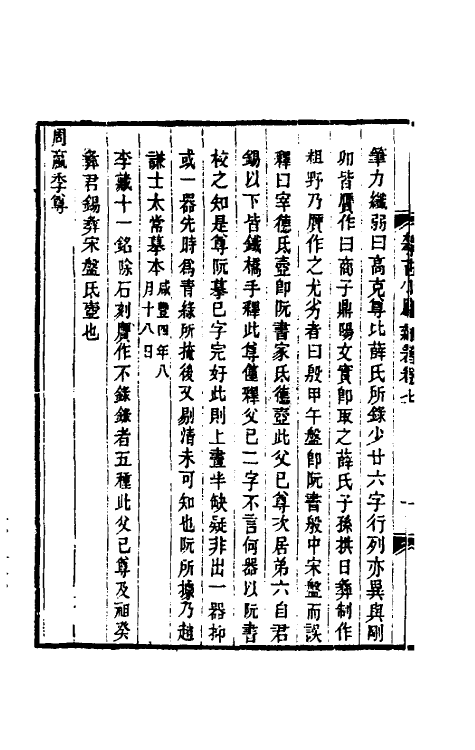 攀古小廬雜著卷七
一
筆力纖弱曰高克尊比薛氏所錄少廿六字行列亦異與剛
卯皆贗作曰商子鼎陽文實卽取之薛氏子孫拱日彝制作
粗野乃贗作之尤劣者曰殷甲午盤卽阮書般中宋盤而誤
釋曰宰德氏壺卽阮書家氏德壺此父已尊次居弟六自君
錫以下皆鐵橋手釋此尊僅釋父已二字不言何器以阮書
校之知是尊阮摹已字完好此則上畫半缺疑非出一器抑
或一器先時爲青綠所掩後又剔清未可知也阮所據乃趙
謙士太常摹本咸豐四年八月十八日
李葴十一銘除石刻贗作不錄錄者五種此父已尊及祖癸
彝君錫彝宋盤氏壺也
周季尊